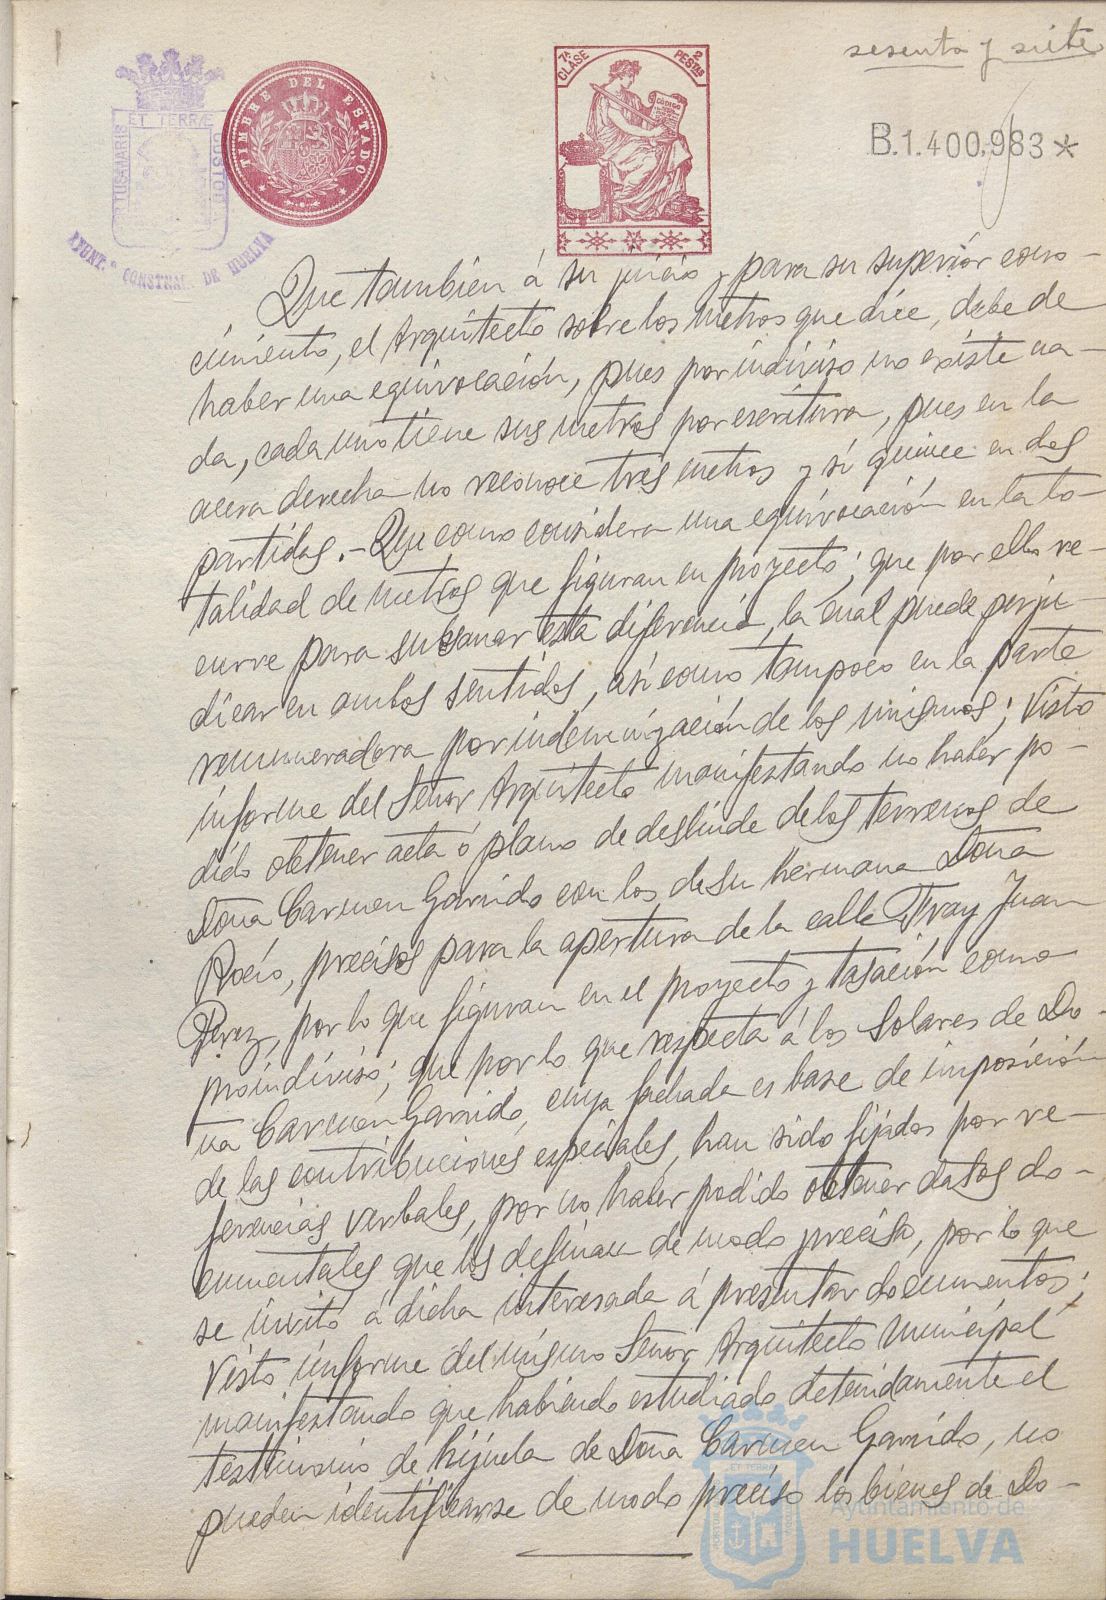 sesenta y siete
ET TERRÆ
PORTUS MARIS
CUSTODIA
AYUNT.º CONSTNAL. DE HUELVA
TIMBRE DEL ESTADO
7ª CLASE
2 PESTAS
CODIGO
B.1.400.983 *
Que también á su juicio y para su superior cono-
cimiento, el Arquitecto sobre los metros que dice, debe de
haber una equivocación, pues por indiviso no existe na-
da, cada uno tiene sus metros por escritura, pues en la
acera derecha no reconoce tres metros y sí quince en dos
partidas.- Que como considera una equivocación en la to-
talidad de metros que figuran en proyecto; que por ello re-
curre para subsanar esta diferencia, la cual puede perju-
dicar en ambos sentidos, así como tampoco en la parte
remuneradora por indemnización de los mismos; Visto
informe del Señor Arquitecto manifestando no haber po-
dido obtener acta ó plano de deslinde de los terrenos de
Doña Carmen Garrido con los de su hermana Doña
Rocío, precisos para la apertura de la calle Fray Juan
Perez, por lo que figuran en el proyecto y tasación como
proindiviso; que por lo que respecta á los Solares de Do-
ña Carmen Garrido, cuya fachada es base de imposición
de las contribuciones especiales, han sido fijados por re-
ferencias verbales, por no haber podido obtener datos do-
cumentales que los definan de modo preciso, por lo que
se invitó á dicha interesada á presentar documentos;
Visto informe del mismo Señor Arquitecto Municipal
manifestando que habiendo estudiado detenidamente el
testimonio de hijuela de Doña Carmen Garrido, no
pueden identificarse de modo preciso los bienes de Do-
Ayuntamiento de
HUELVA